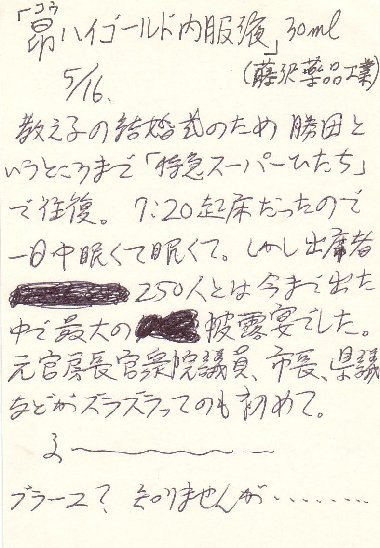 コウ
「昴ハイゴールド内服液」30ml
(藤沢薬品工業)
5/16.
教え子の結婚式のため勝田と
いうところまで「特急スーパーひたち」
で往復。7:20起床だったので
一日中眠くて眠くて。しかし出席者
250人とは今まで出た
中で最大の披露宴でした。
元官房長官衆院議員、市長、県議
などがズラズラってのも初めて。
ブラース? 知りませんが、……..